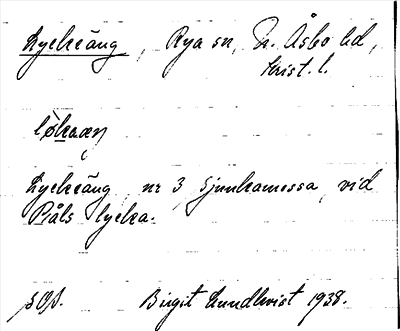 Lyckeäng, Rya sn, N. Åsbo hd,
Krist. l.
Lyckeäng nr 3, Ljunkamossa, vid
Påls lycka.
Birgit Lundkvist 1938.